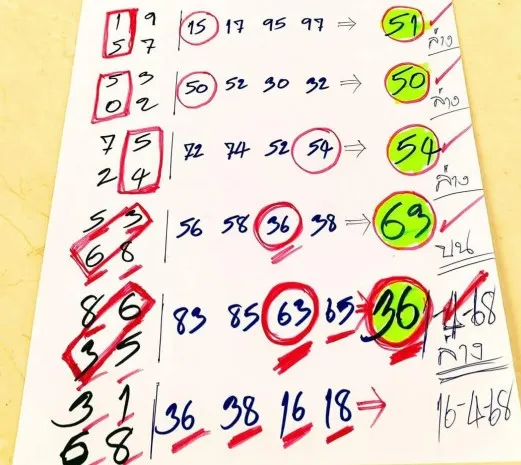 1 9 15 17 95 97 ⇒ 51
5 7 ล่าง
5 3 50 52 30 32 ⇒ 50
0 2 ล่าง
7 5 72 74 52 54 ⇒ 54
2 4 ล่าง
5 3 56 58 36 38 ⇒ 63
6 8 บน
8 6 83 85 63 65 ⇒ 36 1-4-68
3 5 ล่าง
3 1 36 38 16 18 ⇒ 16-4-68
6 8